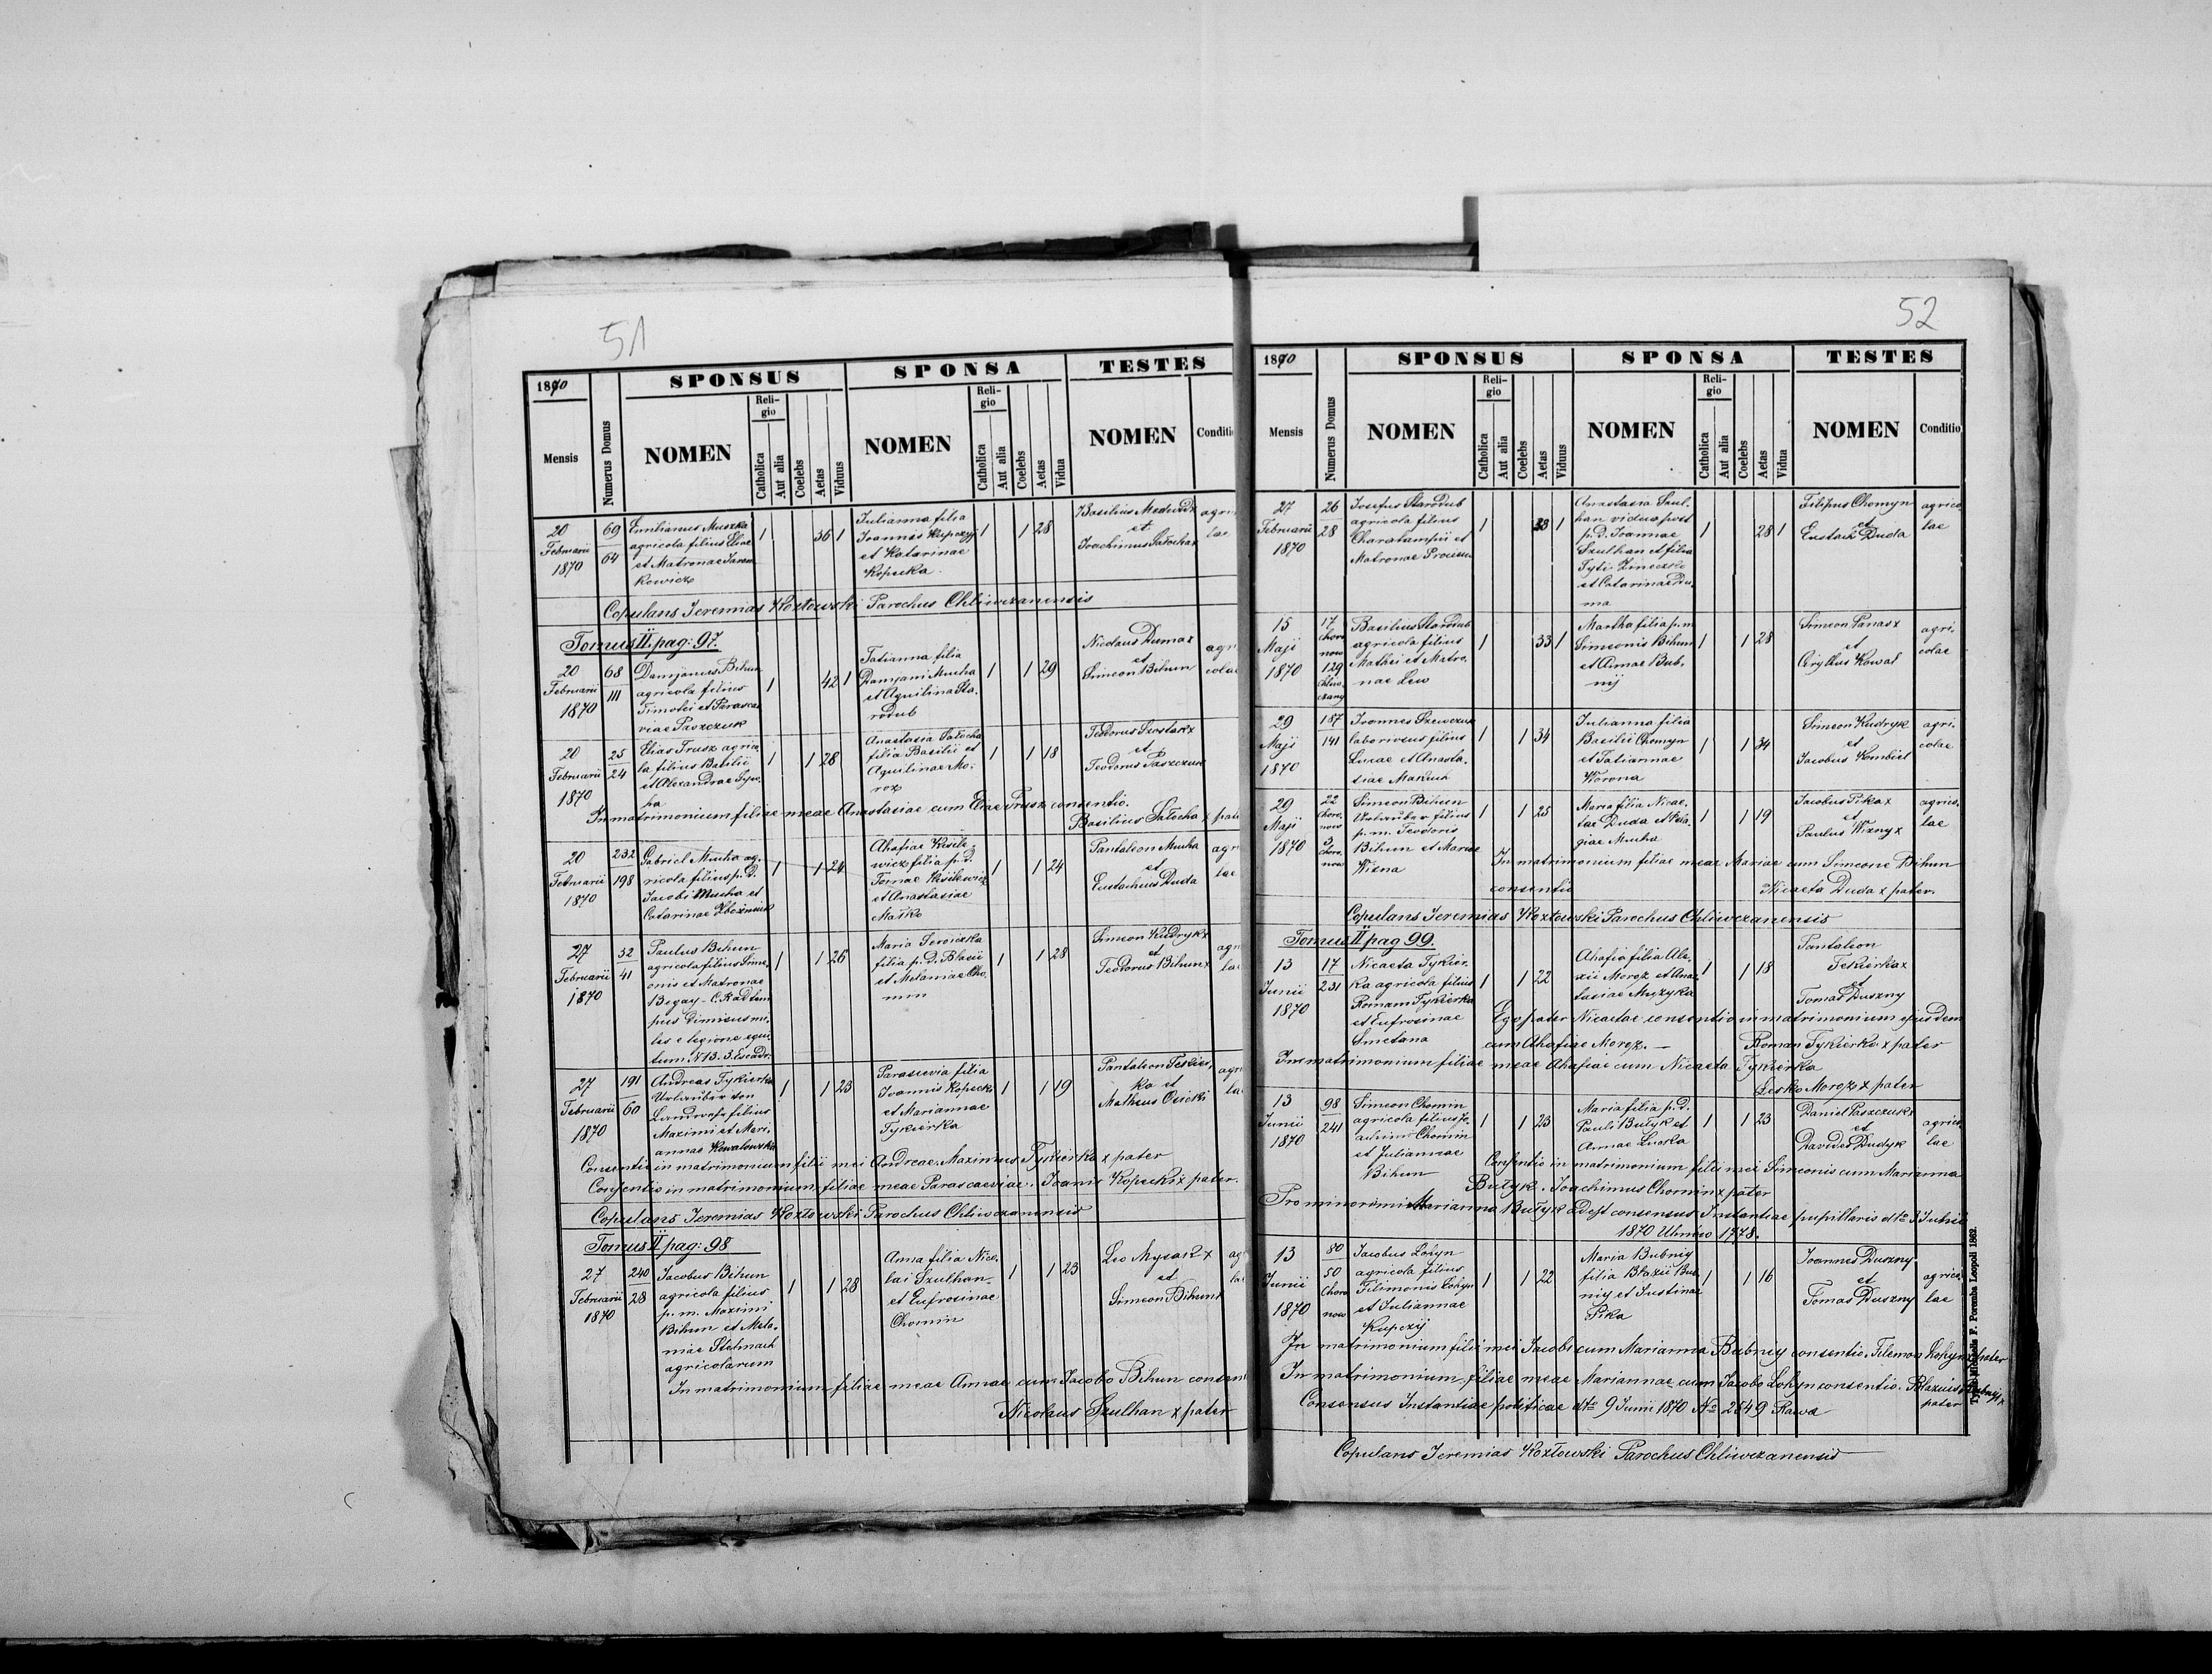 51
1870
SPONSUS
SPONSA
TESTES
Mensis
Numerus Domus
NOMEN
Religio
Catholica
Aut alia
Coelebs
Aetas
Viduus
NOMEN
Religio
Catholica
Aut alia
Coelebs
Aetas
Vidua
NOMEN
Conditi
20
Februarii
1870
69
64
Emilianus Muszka
agricola filius Eliae
et Matronae Jarem
kowicz
1 36 1
Julianna filia
Joannis Kupczyj
et Katarinae
Kopecka
1 1 28
Basilius Medwidx
et
Joachimus Satochax
agri
lae
Copulans Jeremias Kozłowski Parochus Chliwczanensis
Tomus II pag: 97.
20
Februarii
1870
68
111
Damjanus Bihun
agricola filius
Timotei et Parasce
viae Paszczuk
1 42 1
Tatianna filia
Damjani Mucha
et Aquilina Sta-
rodub
1 1 29
Nicolaus Dumax
et
Simeon Bihun
agri
colae
20
Februarii
1870
25
24
Elias Trusz agrico
la filius Basilii
et Alexandrae
1 1 28
Anastasia Satocha
filia Basilii et
Aquilinae Mo-
roz
1 1 18
Teodorus
et
Teodorus Paszczuk
In matrimonium filiae meae Anastasiae cum Elia Trusz consentio.
Basilius Satocha x pate
20
Februarii
1870
232
198
Gabriel Mucha ag-
ricola filius p.d.
Jacobi Mucha et
Catarinae
1 1 24
Ahafiae Kisile-
wicz filia p.d.
Tomae Kisilewicz
et Anastasiae
Mařko
1 1 24
Pantaleon Mucha
et
Eustachius Duda
agri
lae
27
Februarii
1870
32
41
Paulus Bihun
agricola filius Sime-
onis et Matronae
Begay - C.R. ad tem
pus dimisus mi-
les e legione equi-
tum N 13. 3. Escadr.
1 1 26
Maria
filia p.d. Blasii
et Melanniae Cho-
min
1 1 28
Simeon Kudrykx
et
Teodorus Bihunx
agri
lae
27
Februarii
1870
191
60
Andreas Tykierka
Urlauber von
Landwehr filius
Maximi et Mari-
annae Kowalowska
1 1 23
Parascevia filia
Joannis Kopecki
et Mariannae
Tykierka
1 1 19
Pantaleon Tekier-
ka et
Matheus Osicki
agri
lae
Consentio in matrimonium filii mei Andreae. Maximus Tykierka x pater
Consentio in matrimonium filiae meae Parascaeviae. Joannis Kopecki x pater.
Copulans Jeremias Kozłowski Parochus Chliwczanensis
Tomus II pag: 98
27
Februarii
1870
240
28
Jacobus Bihun
agricola filius
p.m. Maximi
Bihun et Mela-
niae Stelmach
agricolarum
1 1 28
Anna filia Nico-
lai Szulhan
et Eufrosinae
Chomin
1 1 23
Leo Mysak x
et
Simeon Bihun x
In matrimonium filiae meae Annae cum Jacobo Bihun consen
Nicolaus Szulhan x pater
52
1870
SPONSUS
SPONSA
TESTES
Mensis
Numerus Domus
NOMEN
Religio
Catholica
Aut alia
Coelebs
Aetas
Viduus
NOMEN
Religio
Catholica
Aut alia
Coelebs
Aetas
Vidua
NOMEN
Conditio
27
Februarii
1870
26
28
Josefus Starodub
agricola filius
Charalampii et
Matronae
1 33 1
Anastasia Szul-
han vidua post
p.d. Joannae
Szulhan et filia
et Catarinae Du-
ma
1 28 1
Filipus Chomyn
et
Eustach Duda
agrico
lae
15
Maji
1870
17
Choro
now
129
Chliw
czany
Basilius Starodub
agricola filius
Mathei et Matro-
nae Lew
1 33 1
Martha filia p.m.
Simeonis Bihun
et Annae Bub-
nij
1 1 28
Simeon Panas x
et
Cyryllus Kowal
agri-
colae
29
Maji
1870
187
141
Joannes Szewczuk
laboriosus filius
Lucae et Anasta-
siae Makuch
1 1 34
Julianna filia
Basilii Chomyn
et Tatiannae
Worona
1 1 34
Simeon Kudryk
et
Jacobus Kombiel
agri-
colae
29
Maji
1870
22
Choro-
now
3
Choro-
now
Simeon Bihun
Urlauber filius
p.m. Teodoris
Bihun et Mariae
Wizna
1 1 25
Maria filia Nicae-
tae Duda et Pela-
giae Mucha
1 1 19
Jacobus Pika x
et
Paulus Wizny x
agrico-
lae
In matrimonium filiae meae Mariae cum Simeone Bihun
consentio
Nicaeta Duda x pater.
Copulans Jeremias Kozłowski Parochus Chliwczanensis
Tomus II pag 99.
13
Junii
1870
17
231
Nicaeta Tykier-
ka agricola filius
Romani Tykierka
et Eufrosinae
Smetana
1 1 22
Ahafia filia Ale-
xii Moroz et Ana-
tasiae Muzyka
1 1 18
Pantaleon
Tekierka x
et
Tomas Duszny
Ego pater Nicaetae consentio in matrimonium ejusdem
cum Ahafiae Moroz. —
Roman Tykierka x pater
In matrimonium filiae meae Ahafiae cum Nicaeta Tykierka
Lesko Moroz x pater
13
Junii
1870
98
241
Simeon Chomin
agricola filius Jo-
achim Chomin
et Juliannae
Bihun
1 1 23
Maria filia p.d.
Pauli Butyk et
Annae Lucka
1 1 23
Daniel Paszczukx
et
Davides Dudyk
agrico
lae
Consentio in matrimonium filii mei Simeonis cum Marianna
Butyk. Joachimus Chomin x pater
Pro minorenni Marianna Butyk adest consensus Instantiae pupillaris dto 3 Julii
1870 1778.
13
Junii
1870
80
50
Choro
now
Jacobus Lohyn
agricola filius
Filimonis Lohyn
et Juliannae
Kupczij
1 1 22
Maria Bubniy
filia Blazii Bub-
niy et Justinae
Pika
1 1 16
Joannes Duszny
et
Tomas Duszny
agrico
lae
In matrimonium filii mei Jacobi cum Marianna Bubniy consentio. Filemon Lohyn x pater
In matrimonium filiae meae Mariannae cum Jacobo Lohyn consentio. Blazius Bubnij x
pater
Consensus Instantiae politicae dto 9 Junii 1870 No 2849 Rawa
Copulans Jeremias Kozłowski Parochus Chliwczanensis
F. Poremba Leopoli 1862.